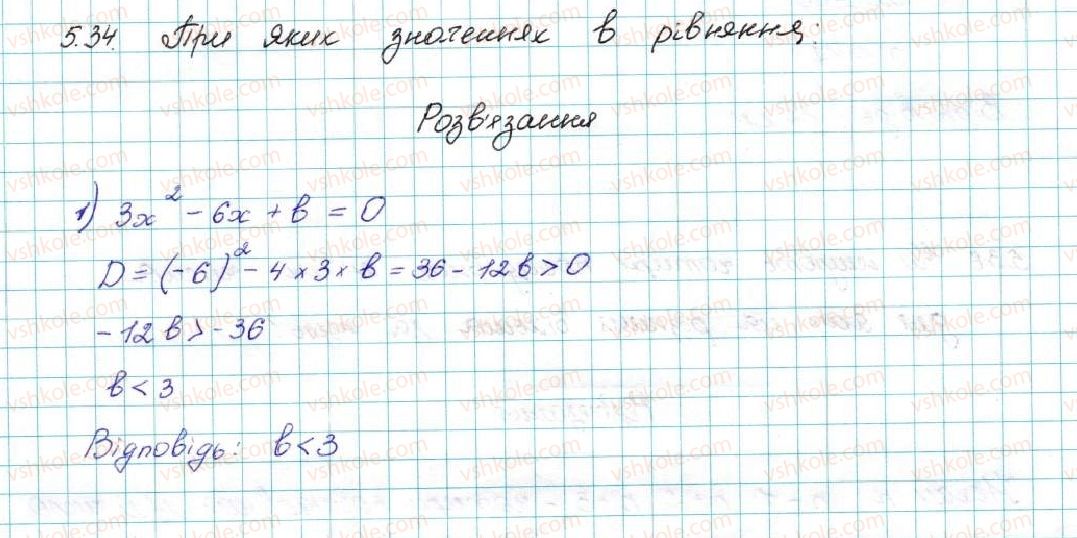 5.34. При яких значеннях b рівняння:
Розв'язання
1) 3x² - 6x + b = 0
D = (-6)² - 4 × 3 × b = 36 - 12b > 0
- 12b > - 36
b < 3
Відповідь: b < 3